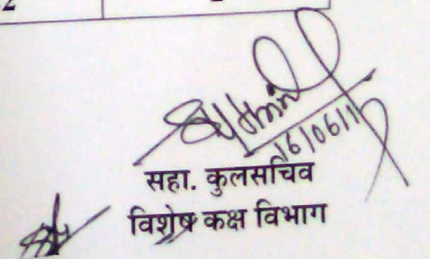 2
16/06/11
सहा. कुलसचिव
विशेष कक्ष विभाग